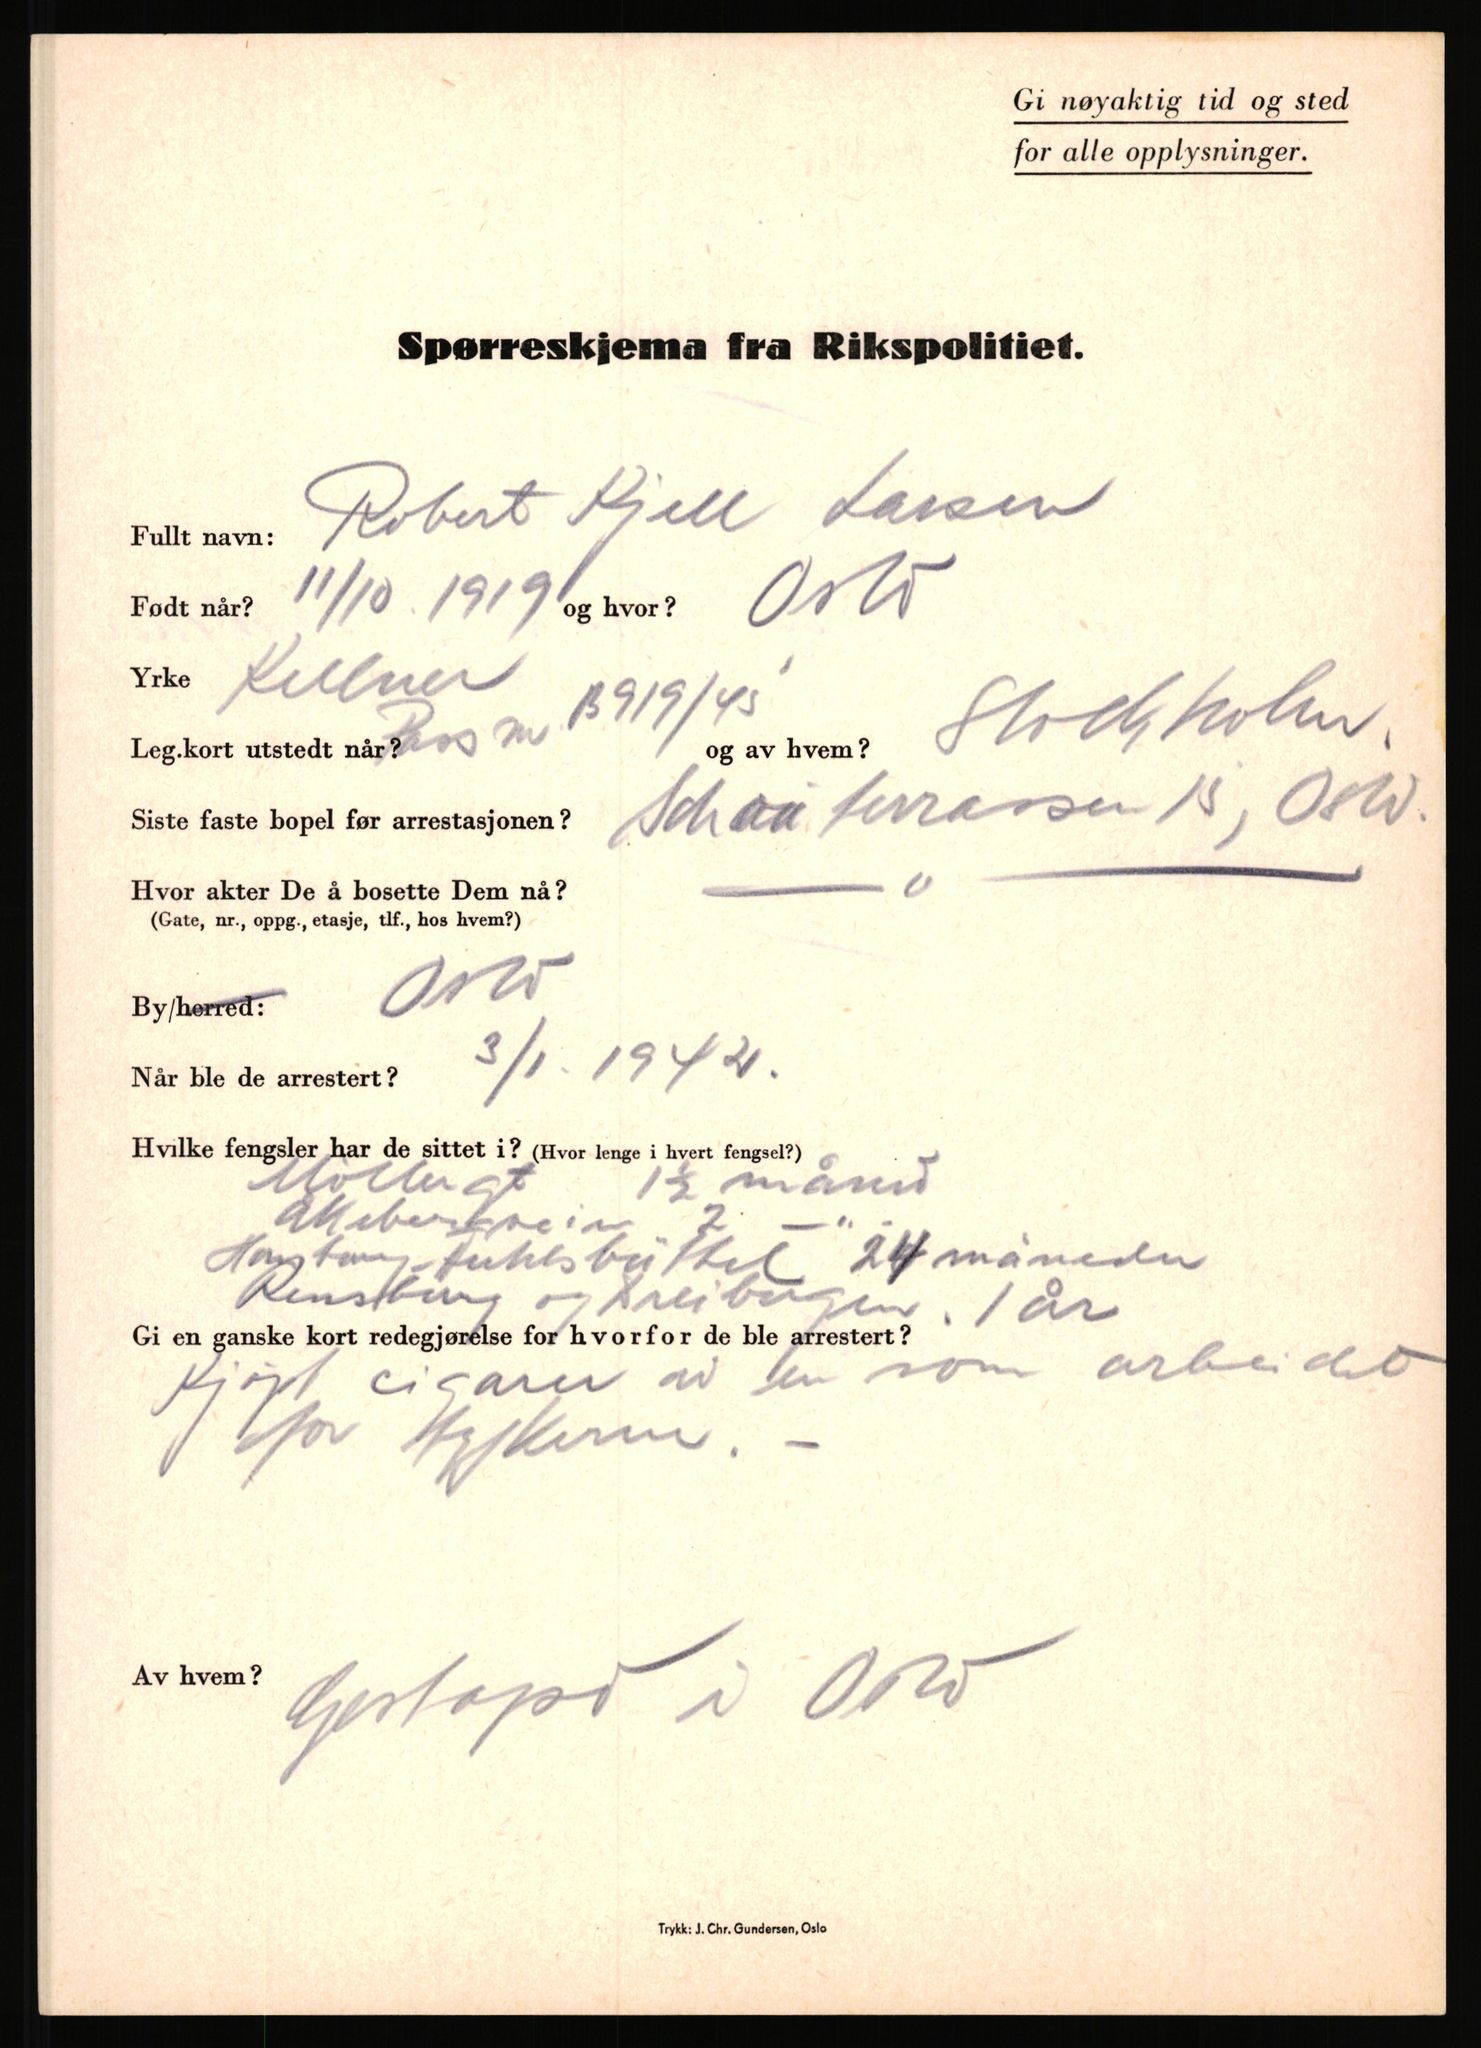 Gi nøyaktig tid og sted
for alle opplysninger.
Spørreskjema fra Rikspolitiet.
Fullt navn: Robert Kjell Larsen
Født når? 11/10. 1919 og hvor? Oslo
Yrke Kellner
Leg.kort utstedt når? Pass nr B919/45 og av hvem? Stockholm.
Siste faste bopel før arrestasjonen? Schaaterrassen 15, Oslo.
Hvor akter De å bosette Dem nå? — " —
(Gate, nr., oppg., etasje, tlf., hos hvem?)
By/herred: Oslo
Når ble de arrestert? 3/1. 1942.
Hvilke fengsler har de sittet i? (Hvor lenge i hvert fengsel?)
Møllergt 1½ måned
Åkebergveien 2 — " —
Hamburg-Fuhlsbüttel 24 måneder
Rensburg og Dreibergen. 1 år
Gi en ganske kort redegjørelse for hvorfor de ble arrestert?
Kjøpt cigarer av en som arbeidet
for tyskerne. —
Av hvem? Gestapo i Oslo
Trykk: J. Chr. Gundersen, Oslo